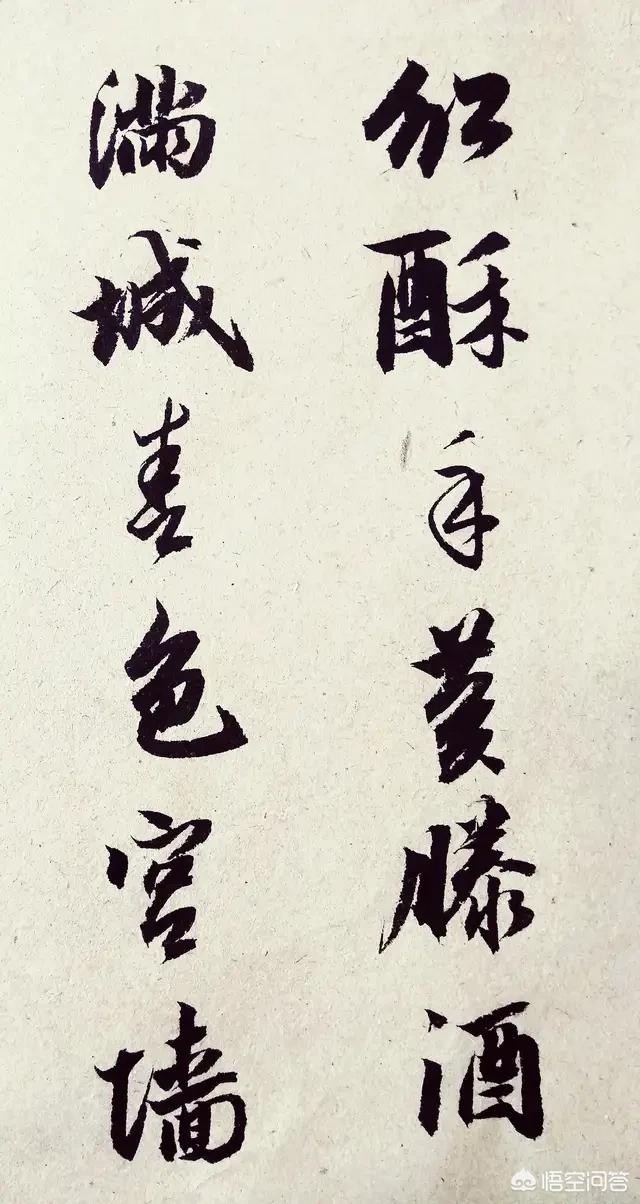 红酥手黄縢酒
满城春色宫墙
悟空问答